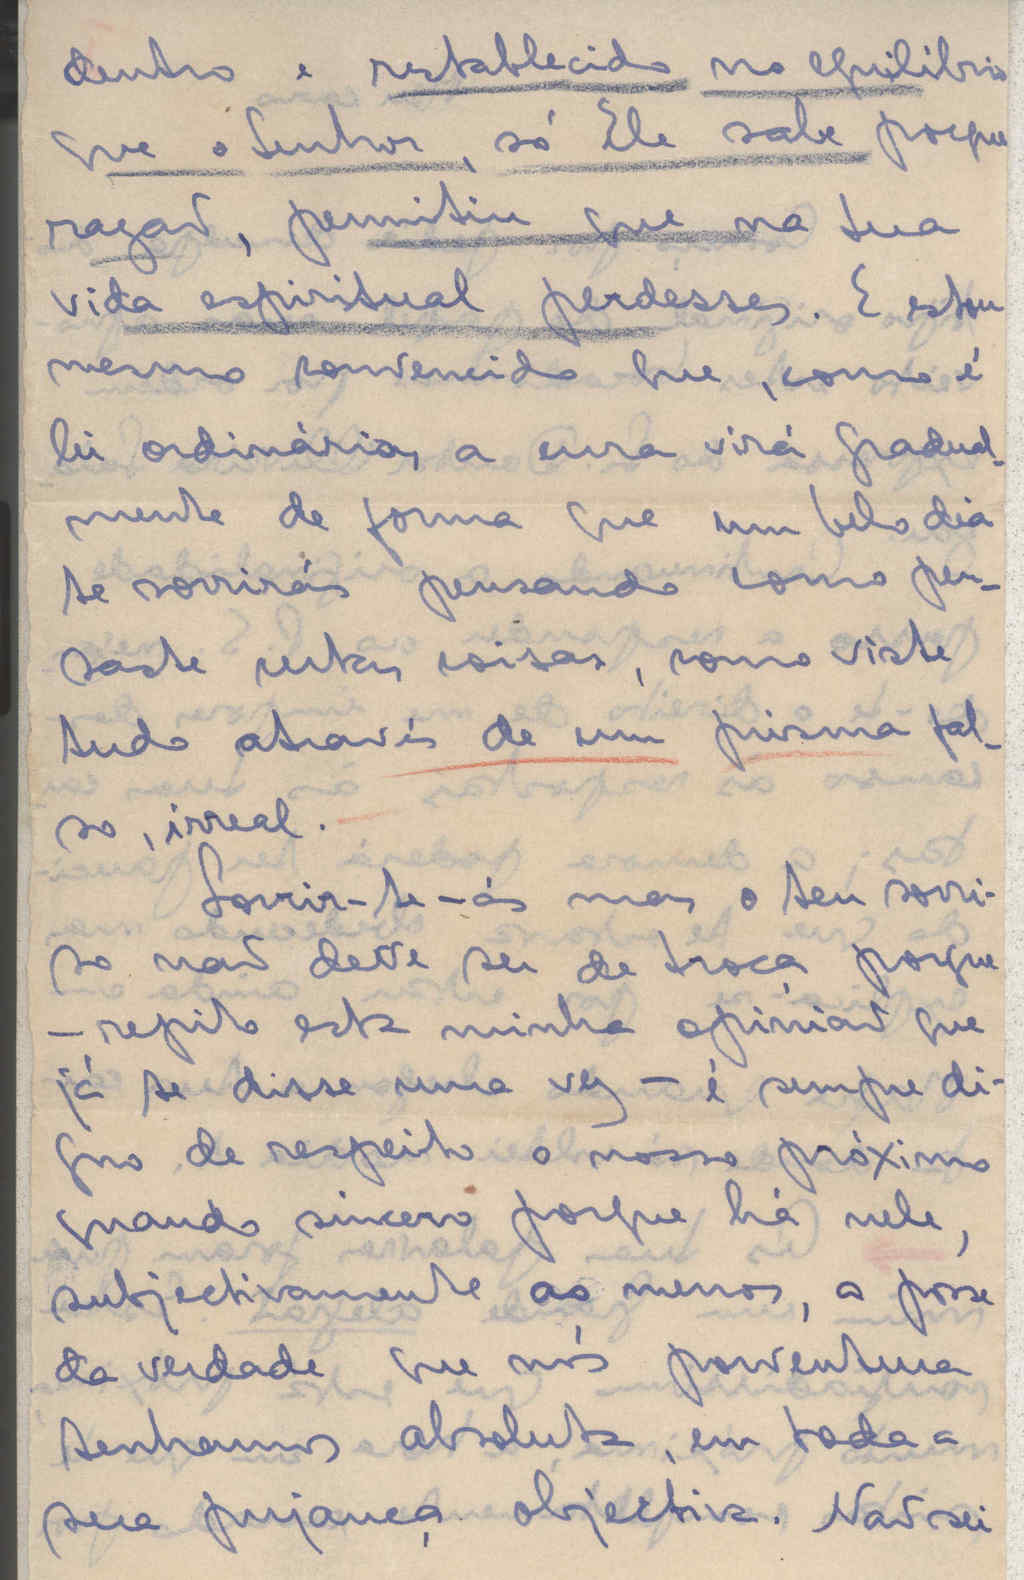 dentro e restablecido no equilíbrio
que o Senhor, só Ele sabe porque
razão, permitiu que na tua
vida espiritual perdesses. E estou
mesmo convencido que, como é
lei ordinária, a cura virá gradual-
mente de forma que um belo dia
te sorrirás pensando como pen-
saste certas coisas, como viste
tudo através de um prisma fal-
so, irreal.
Sorrir-te-ás mas o teu sorri-
so não deve ser de troça porque
– repito esta minha opinião que
já te disse uma vez – é sempre di-
gno de respeito o nosso próximo
quando sincero porque há nele,
subjectivamente ao menos, a posse
da verdade que nós porventura
tenhamos absoluta, em toda a
sua pujança objectiva. Não sei